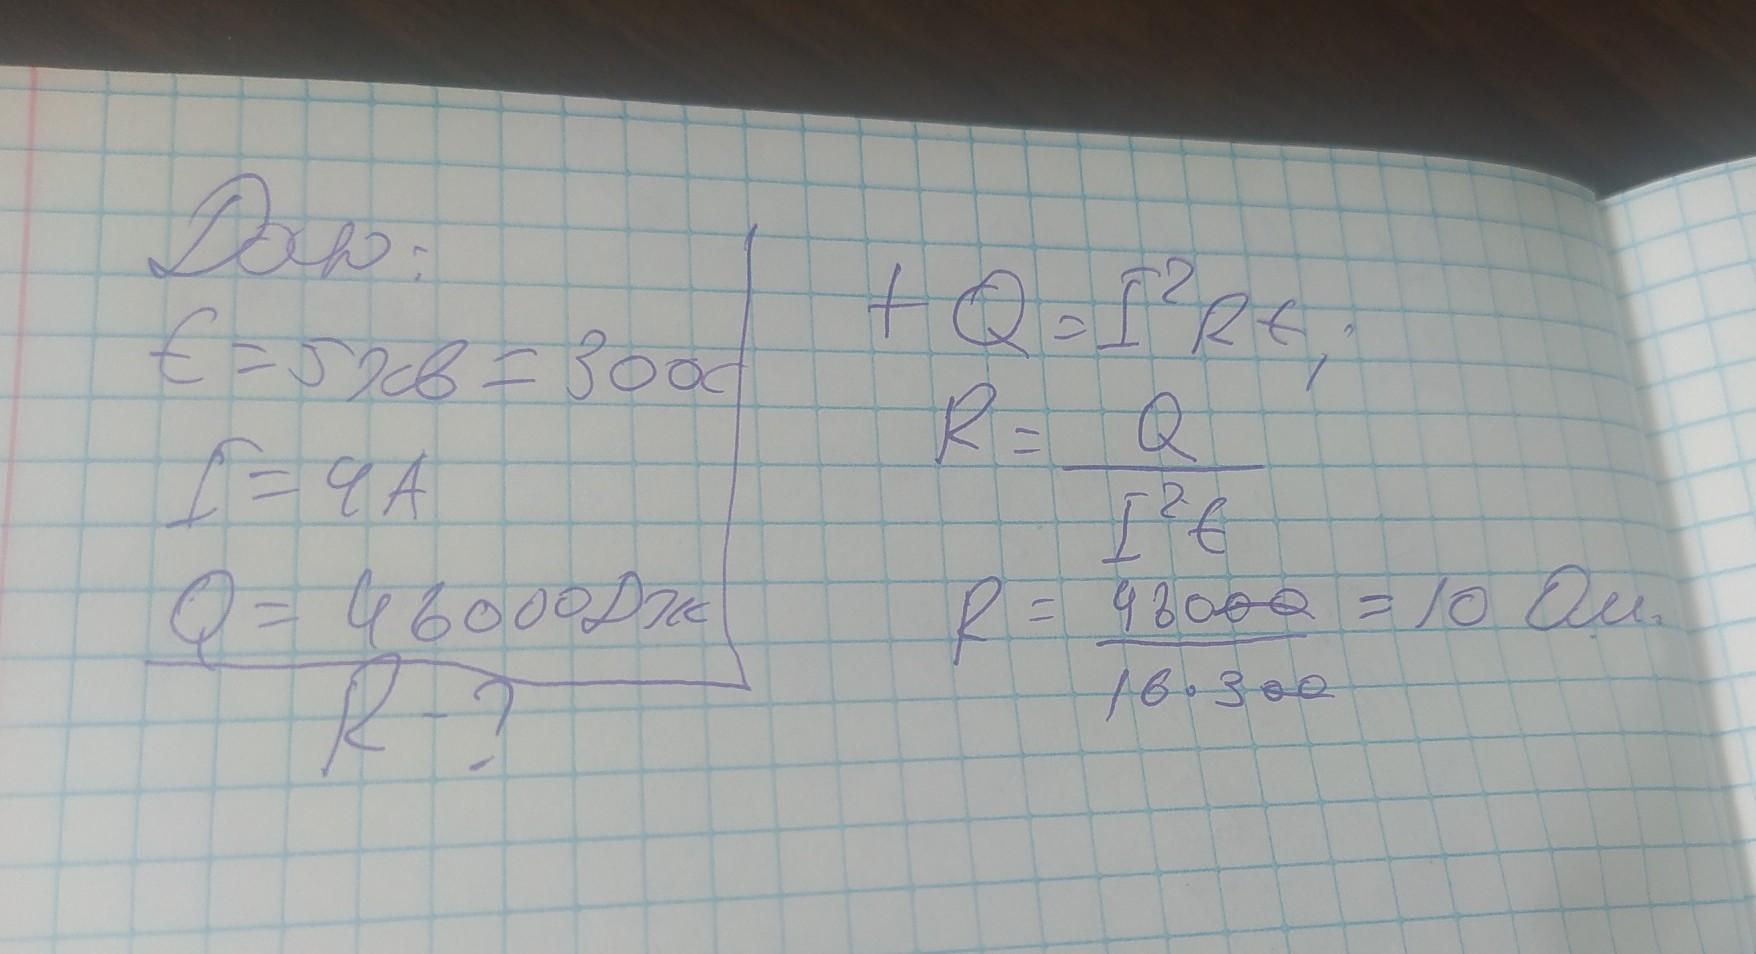 Дано:
t = 5 хв = 300 с
I = 4 А
Q = 48000 Дж
R - ?
+ Q = I² R t;
R = Q / I² t
R = 48000 / 16 · 300 = 10 Ом.